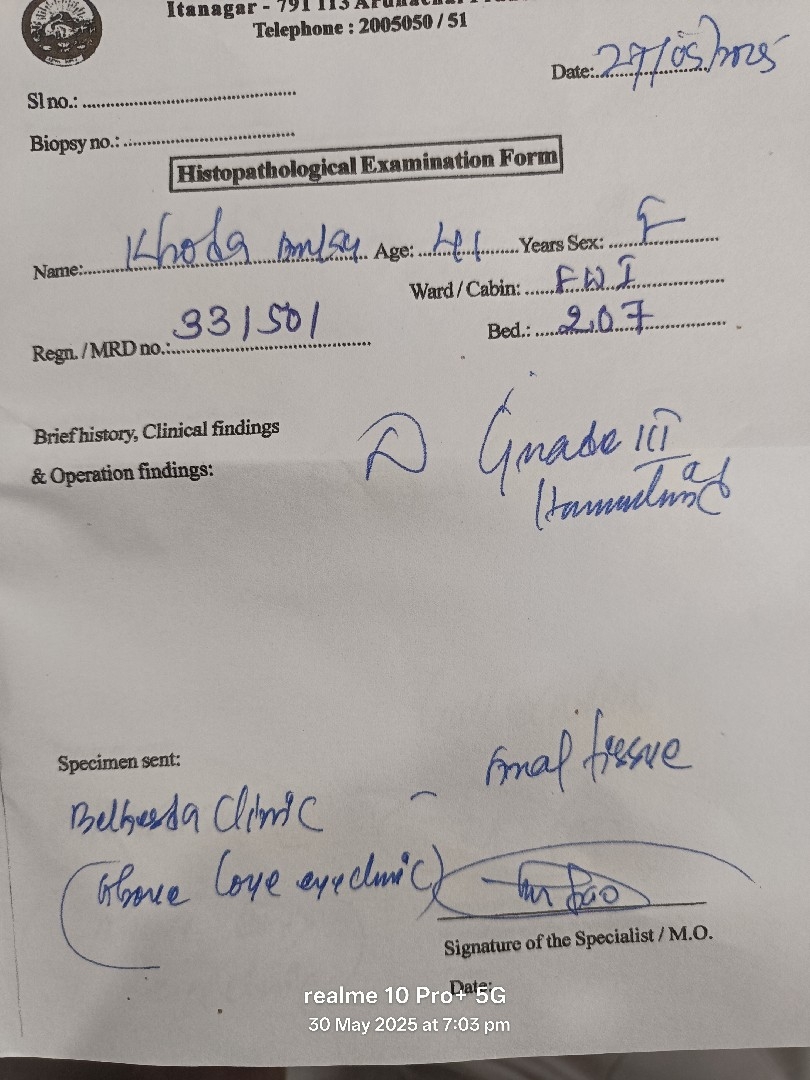 Itanagar - 791 113
Telephone : 2005050 / 51
Date: 27/05/2025
Sl no.:
Biopsy no.:
Histopathological Examination Form
Name: Khoda Age: 41 Years Sex: F
Ward / Cabin: FWI
Regn. / MRD no.: 331501 Bed.: 207
Brief history, Clinical findings
& Operation findings:
Grade III
Specimen sent:
- Anal tissue
Clinic
(Above eye clinic)
Signature of the Specialist / M.O.
Date:
realme 10 Pro+ 5G
30 May 2025 at 7:03 pm